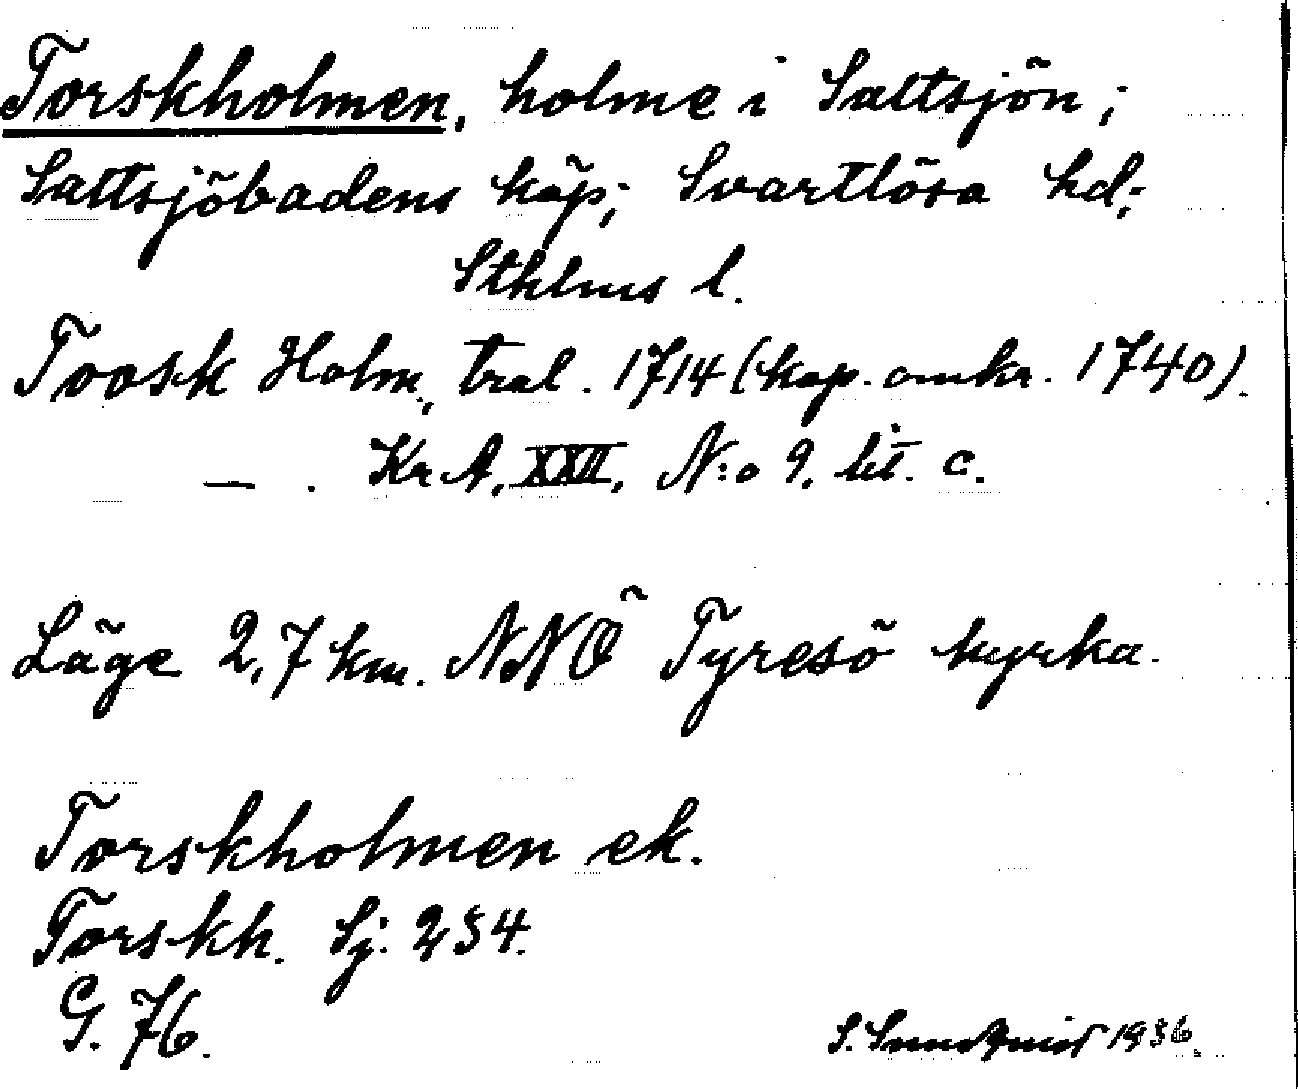 Torskholmen, holme i Saltsjön;
Saltsjöbadens köp; Svartlösa hd;
Sthlms l.
Toosk Holm, tral. 1714 (kop. omkr. 1740).
— . KrA, XXII, N:o 9, lit. c.
Läge 2,7 km. NNÖ Tyresö kyrka.
Torskholmen ek.
Torskh. Sj. 234.
G. 76.
S. Sundquist 1936.